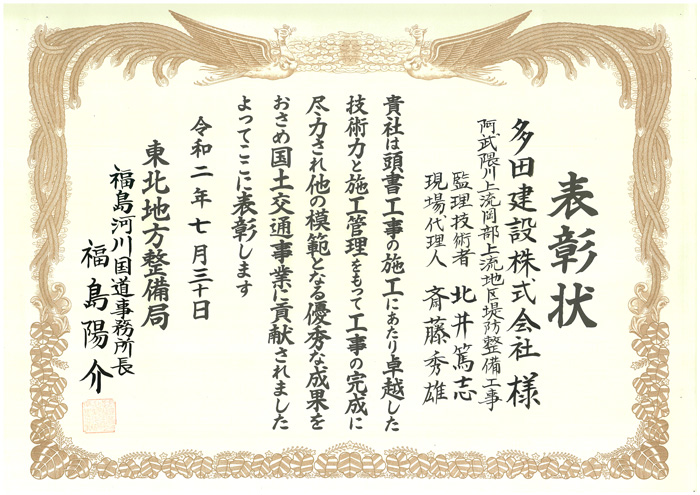 表彰状
多田建設株式会社 様
阿武隈川上流岡部上流地区堤防整備工事
監理技術者 北井篤志
現場代理人 斎藤秀雄
貴社は頭書工事の施工にあたり卓越した
技術力と施工管理をもって工事の完成に
尽力され他の模範となる優秀な成果を
おさめ国土交通事業に貢献されました
よってここに表彰します
令和二年七月三十日
東北地方整備局
福島河川国道事務所長
福島陽介